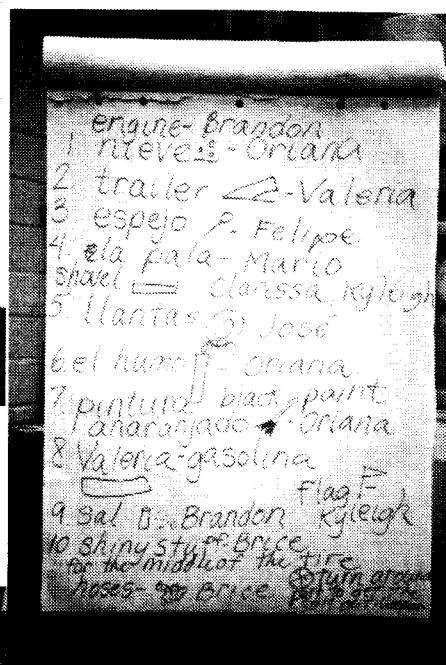 engine - Brandon
1 nieve - Oriana
2 trailer - Valeria
3 espejo - Felipe
4. la pala - Mario
shovel Clarissa, Kyleigh
5 llantas José
6. el humo - Oriana
7. pintura black paint
anaranjado - Oriana
8 Valeria - gasolina
flag -
9 sal Brandon Kyleigh
10 shiny stuff - Brice
for the middle of the tire
hoses - Brice turn around